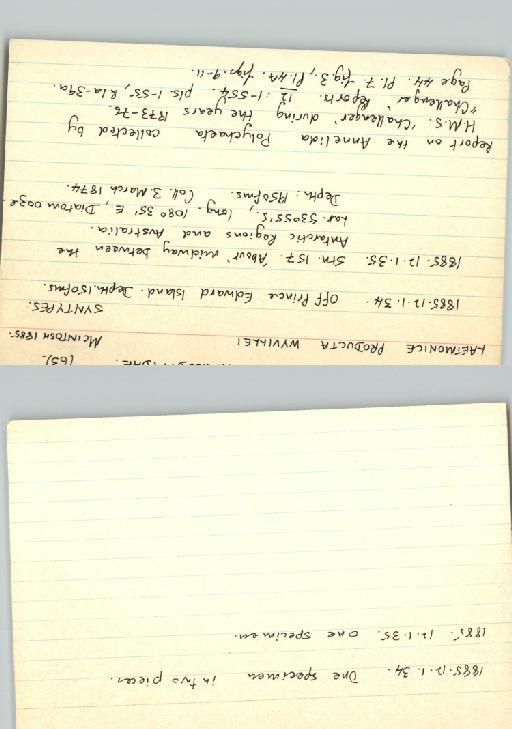 (63).
LAETMONICE PRODUCTA WYVILLEI McINTOSH 1885.
SYNTYPES.
1885.12.1.34. Off Prince Edward Island. Depth. 150fms.
1885.12.1.35. Stn. 157. "About midway between the
Antarctic Regions and Australia.
Lat. 53°55'S., long. 108° 35', E, Diatom ooze.
Depth: 1950fms. Coll. 3 March 1874.
Report on the Annelida Polychaeta collected by
H.M.S. 'Challenger' during the years 1873-76.
"Challenger" Reports. 12 : 1-554. pls. 1-55, & 1a-39a.
Page 44. Pl. 7. fig.3, Pl. 4A. figs. 9-11.
1885.12.1.34. One specimen in two pieces.
1885. 12.1.35. One specimen.